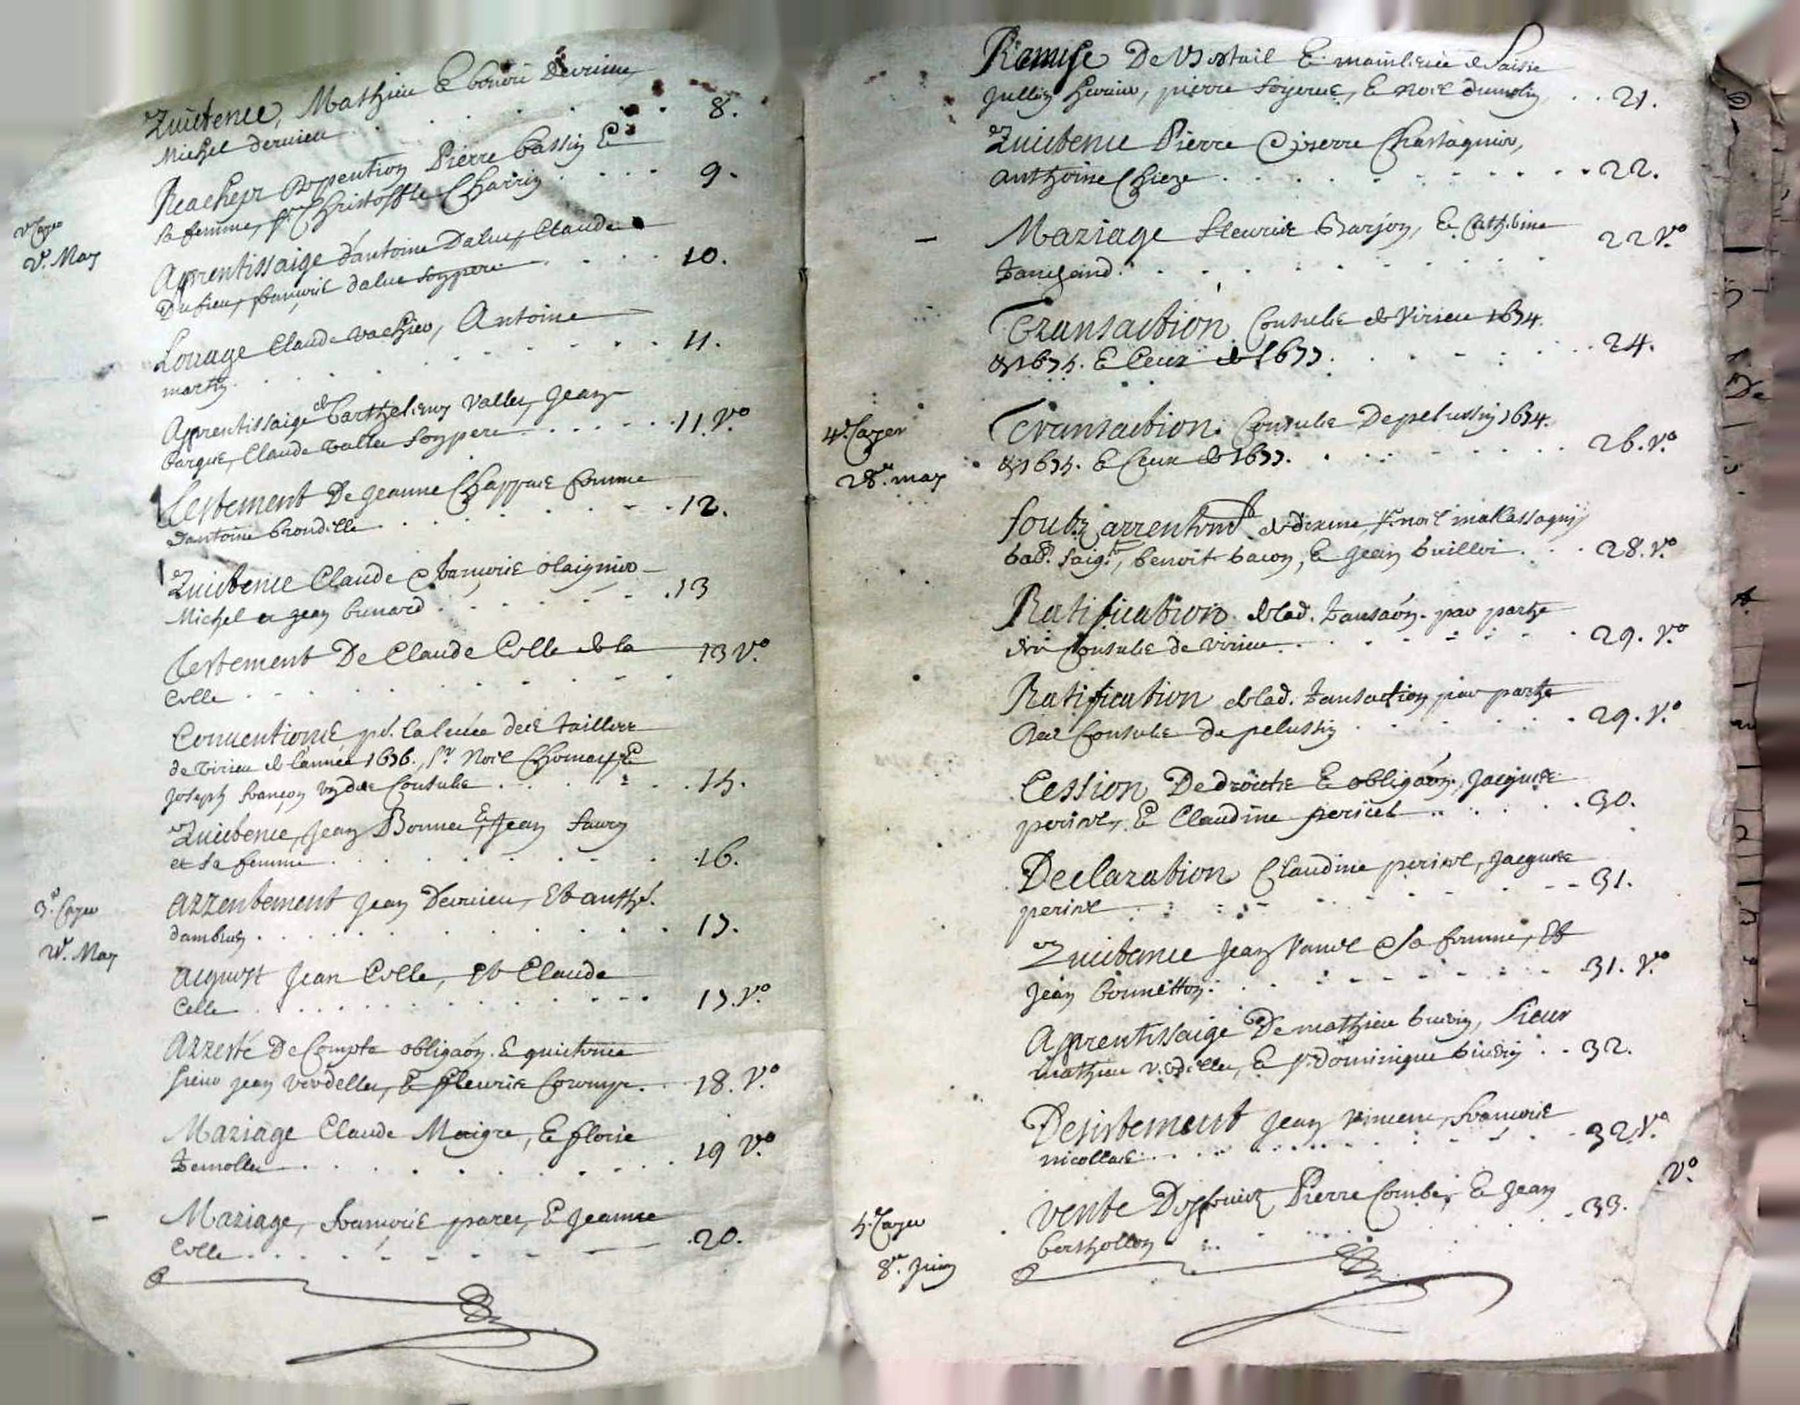 Quictence, Mathieu E benoit Dervieux
Michel dervieu . . . . . . . 8.
Reachept pention Pierre bassin E
sa femme, sr. Christofle Charrin . . . . 9.
2e Cayer
2e. May
Apprentissaige d'antoine Daluy, Claude
Dubieu, francois daluy son pere . . . . 10.
Louage Claude vachier, Antoine
martin . . . . . . . . 11.
Apprentissaige de barthelemy Valley, Jean
Farque, Claude valley son pere . . . . . . 11. Vo
Testement De Jeanne Chappuis femme
d'antoine brondille . . . . . . 12.
Quictence Claude E francoise olaignier
Michel et Jean bunard . . . . . . 13
Testement De Claude Colle de la
Colle . . . . . . . . 13 Vo.
Conventions pr. la levée des tailles
de virieu de l'année 1676., sr. Noel Chomas, E
Joseph françon ungdes Consuls . . . . . . 15.
Quictence, Jean Bonnet, E Jean faury
et sa femme . . . . . . . . 16.
3e. Cayer
2e. May
Arrentement Jean Dervieu, Et anthe.
dambrun . . . . . . . . 17.
Acquist Jean Colle, Et Claude
Celle . . . . . . . . 17. Vo.
Arresté De Compte obligaon. E quictence
sieur Jean verdellet, E fleurie Corompt. . . 18. Vo.
Mariage Claude Maigre, E florie
Temollet . . . . . . . . 19 Vo.
Mariage, francois paret, E Jeanne
Colle . . . . . . . . 20.
Remise De Bestail E mainlevée de saisie
Jullien hervier, pierre soyere, E noel dumolin . . 21.
Quictence Pierre E pierre Chastagnier,
anthoine Chieze . . . . . . . . 22.
Mariage fleurie Barjon, E Catherine
. . . . . . . . 22 Vo.
Transaction. Consuls de Virieu 1674.
& 1675. E Ceux de 1677. . . . . . . 24.
4e. Cayer
28e. may
Transaction. Consuls De pelussin 1674.
& 1675. E Ceux de 1677. . . . . . . 26. Vo
soubz arrentemt de dixme, sr noel
bad. , benoit bacon, E Jean . . . 28. Vo.
Ratification de lad. transaon. par partye
des Consuls de virieu . . . . . . 29. Vo.
Ratification de lad. transaction par partye
des Consuls de pelussin . . . . . . 29. Vo.
Cession De droicts E obligaon, Jacques
, E Claudine . . . . . . 30.
Declaration Claudine , Jacques
. . . . . . . 31.
Quictence Jean E sa femme, Et
Jean bonnetton . . . . . . . . 31. Vo.
Apprentissaige De mathieu , sieur
mathieu verdellet, E sr. dominique . . 32.
Desistement Jean vincent, francois
nicollas . . . . . . . . 32 Vo.
Vo.
5e. Cayer
8e. Juin
vente Pierre Combe, E Jean
bertholon . . . . . . . . 33.